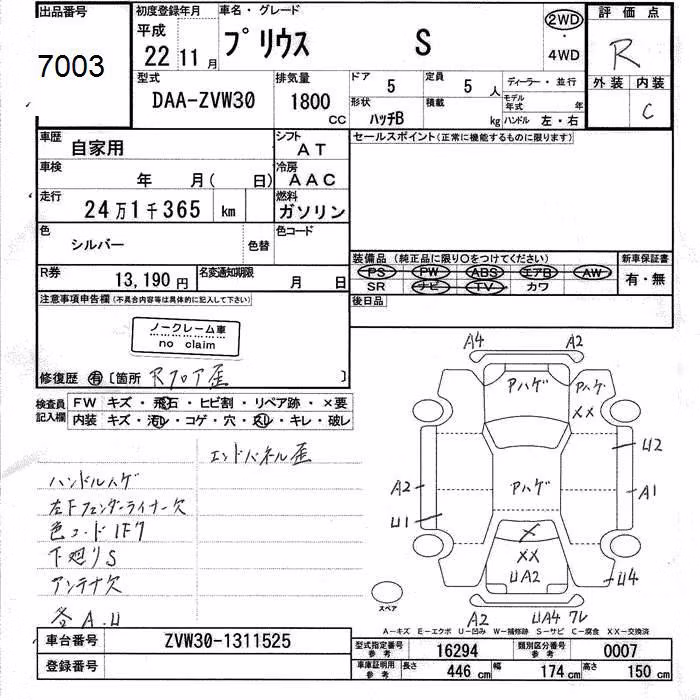 出品番号
7003
初度登録年月
平成
22年11月
車名・グレード
プリウス S
2WD
・
4WD
評価点
R
外装 内装
C
型式
DAA-ZVW30
排気量
1800
CC
ドア
5
定員
5人
ディーラー・並行
形状
ハッチB
積載
kg
モデル年式 年
ハンドル 左・右
車歴
自家用
シフト
AT
セールスポイント(正常に機能するものに限ります)
車検
年 月( 日)
冷房
AAC
走行
24万1千365 km
燃料
ガソリン
色
シルバー
色替
色コード
装備品 (純正品に限り○をつけてください)
PS PW ABS エアB AW
SR ナビ TV カワ
新車保証書
有・無
R券
13,190円
名変通知期限
月 日
後日品
注意事項申告欄(不具合内容等は具体的に記入して下さい)
ノークレーム車
no claim
修復歴 有 [箇所 Rフロア歪 ]
検査員記入欄
FW キズ・飛石・ヒビ割・リペア跡・×要
内装 キズ・汚レ・コゲ・穴・スレ・キレ・破レ
エンドパネル歪
ハンドルハゲ
左Fフェンダーライナー欠
色コード1F7
下廻りS
アンテナ欠
各A.U
A4 A2
Pハゲ
Pハゲ
XX
U2
A2
Pハゲ
A1
U1
X
XX
UA2
U4
スペア
A2
UA4 ワレ
A-キズ E-エクボ U-凹み W-補修跡 S-サビ C-腐食 XX-交換済
車台番号
ZVW30-1311525
登録番号
型式指定番号
参考
16294
類別区分番号
参考
0007
車庫証明用
参考
長さ 446 cm 幅 174 cm 高さ 150 cm